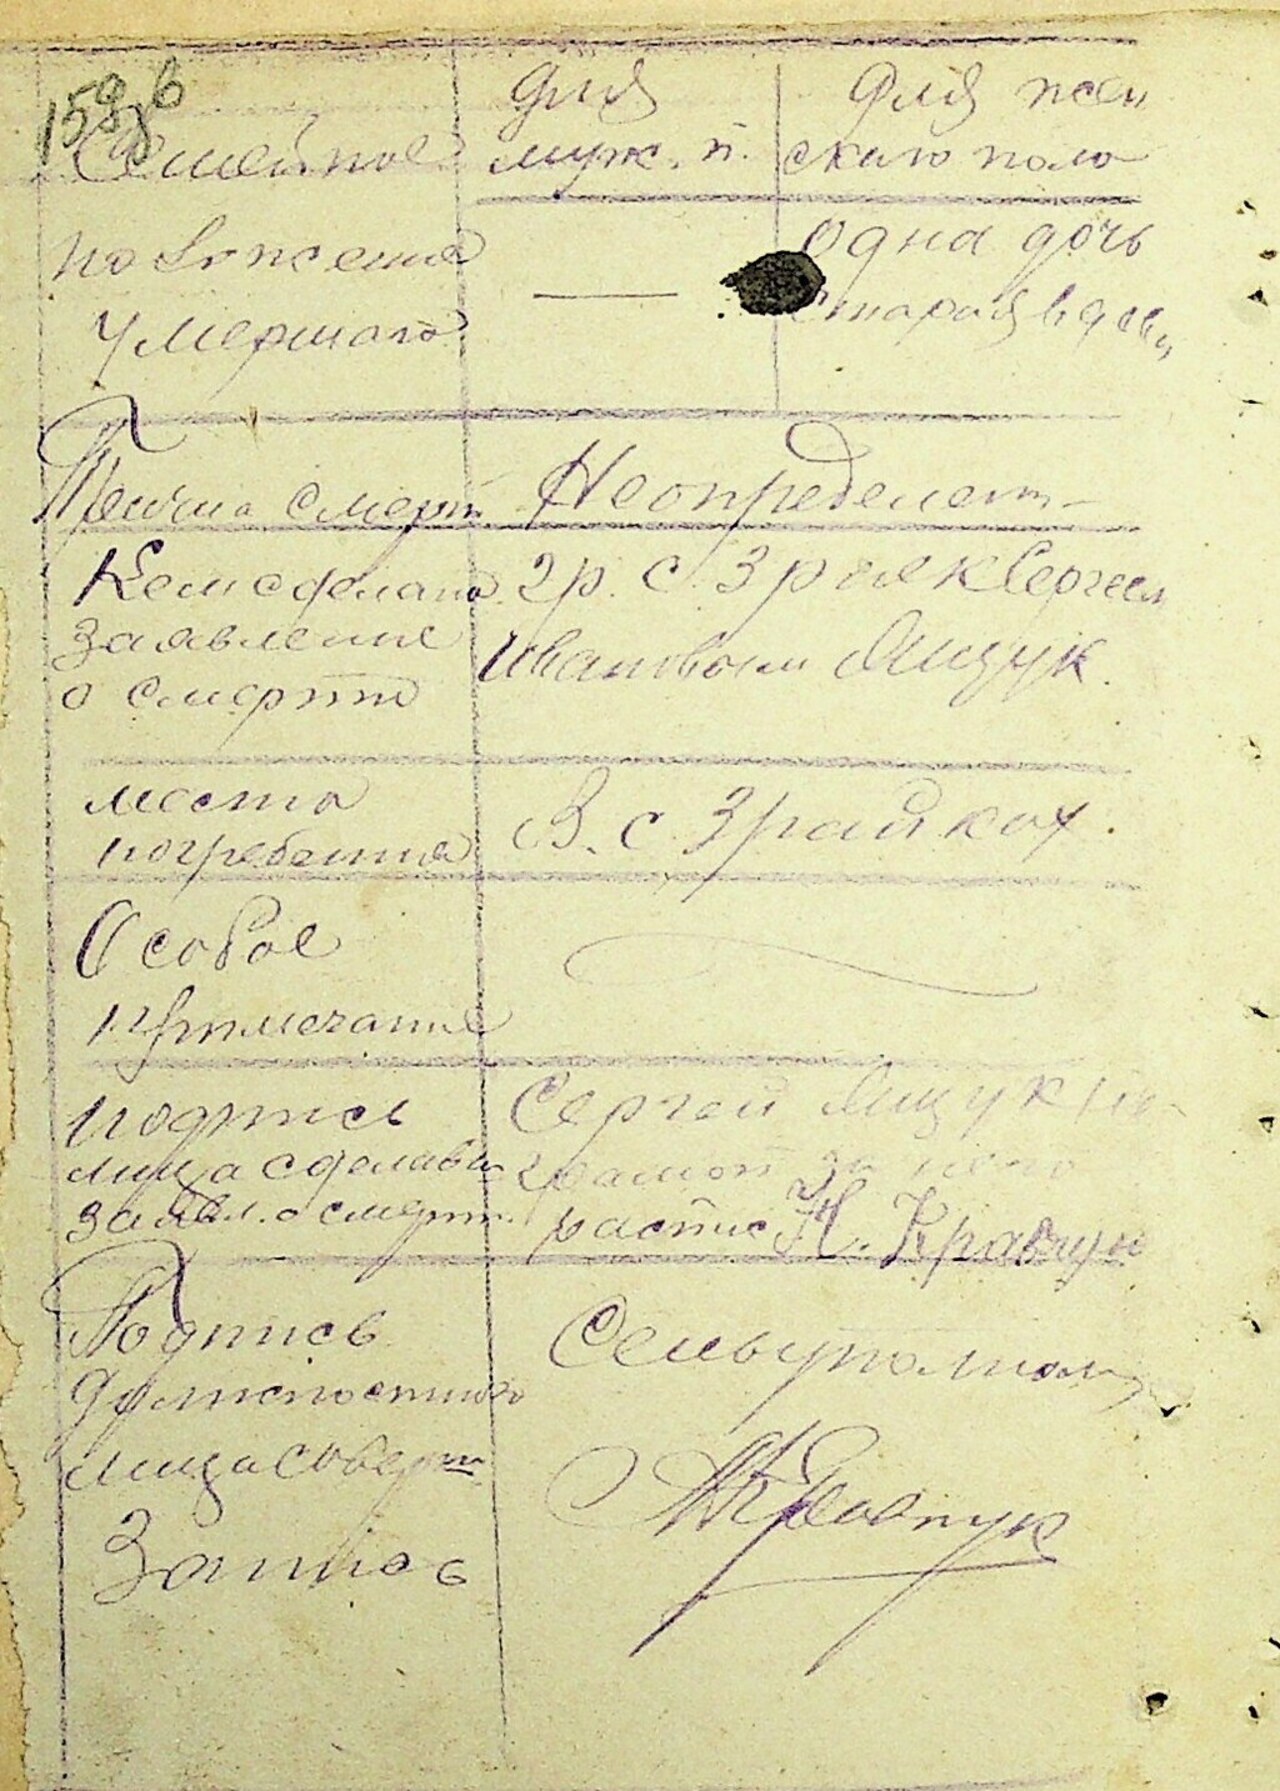 159 об
Семейное
Для
муж. п.
Для жен
ского пола
положение
умершего
одна дочь
старая вдова
Причина смерт.
Неопределен
Кем сделано
заявление
о смерти
гр. с. Зраек Сергеем
Ивановым Ящук.
место
погребения
В. с. Зрайках.
Особое
примечание
подпись
лица сделавш
заявл. о смерт.
Сергей Ящук
грамот за него
распис Н. Кравчук
Подпись
должностного
лица соверш
Запись
Сельуполном
Кравчук